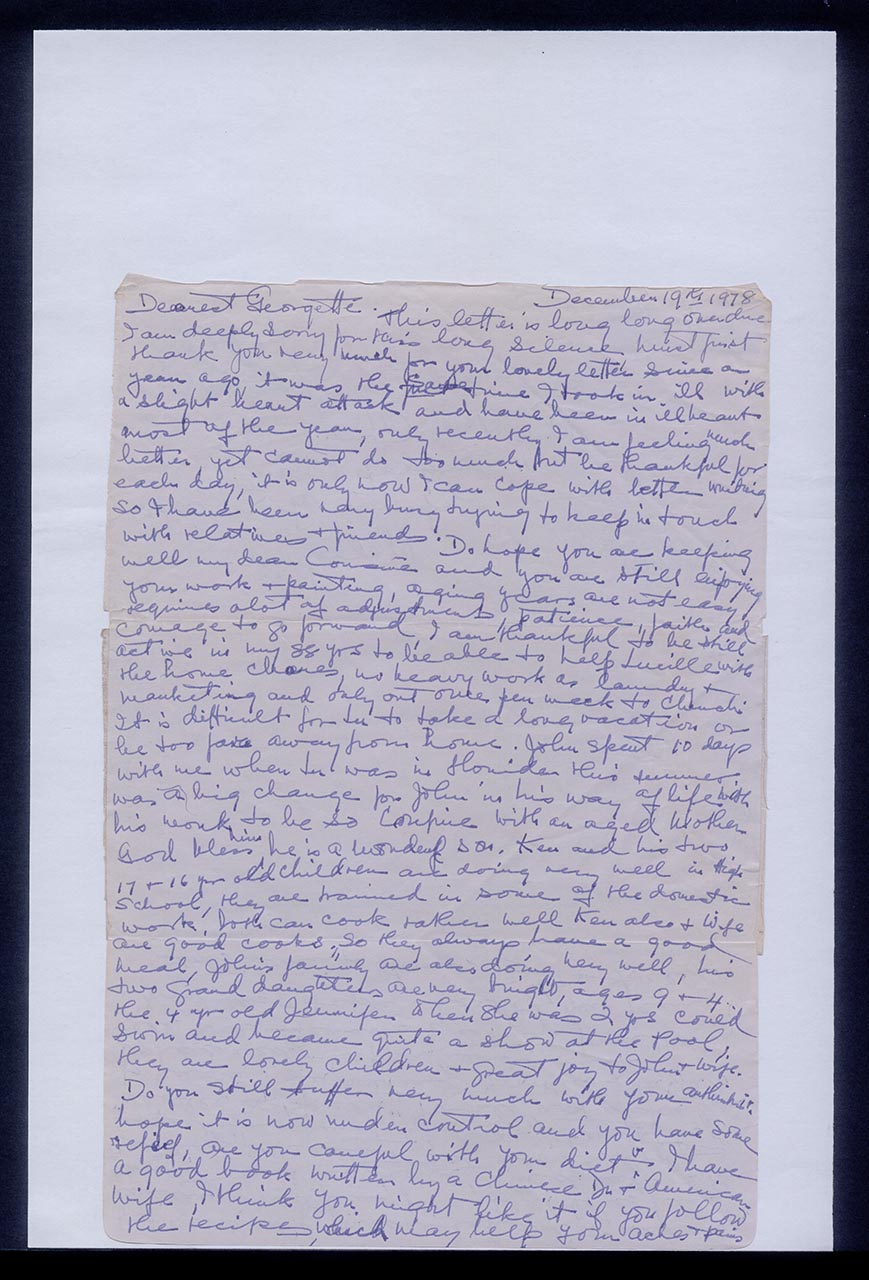 December 19th 1978
Dearest Georgette. This letter is long long overdue
I am deeply sorry for this long silence must first
thank you very much for your lovely letter since a
year ago, it was the same time I took in ill with
a slight heart attack and have been in ill heart
most of the year, only recently I am feeling much
better yet cannot do too much but be thankful for
each day, it is only now I can cope with letter writing
so I have been very busy trying to keep in touch
with relatives + friends. Do hope you are keeping
well my dear Cousine and you are still enjoying
your work + painting, aging years are not easy
requires alot of adjustment, patience, faith and
courage to go forward I am thankful to be still
active in my 88 yrs to be able to help Lucille with
the home chores, no heavy work as laundry +
marketing and only out once per week to Church
It is difficult for to take a long vacation or
be too far away from home. John spent 10 days
with me when was in Florida this summer
was a big change for John in his way of life with
his work to be so confine with an aged Mother
God bless him he is a wonderful son. Ken and his two
17 + 16 yr old children are doing very well in High
School, they are trained in some of the domestic
work, both can cook rather well Ken also + wife
are good cooks, so they always have a good
meal, John's family are also doing very well, his
two Grand daughters are very bright, ages 9 + 4.
the 4 yr old Jennifer when she was 2 yrs could
swim and became quite a show at the Pool,
they are lovely children + great joy to John + wife.
Do you still suffer very much with your
hope it is now under control and you have some
relief, are you careful with your diet I have
a good book written by a Chinese Dr + American
wife, I think you might like it if you follow
the recipes, which may help your aches + pains